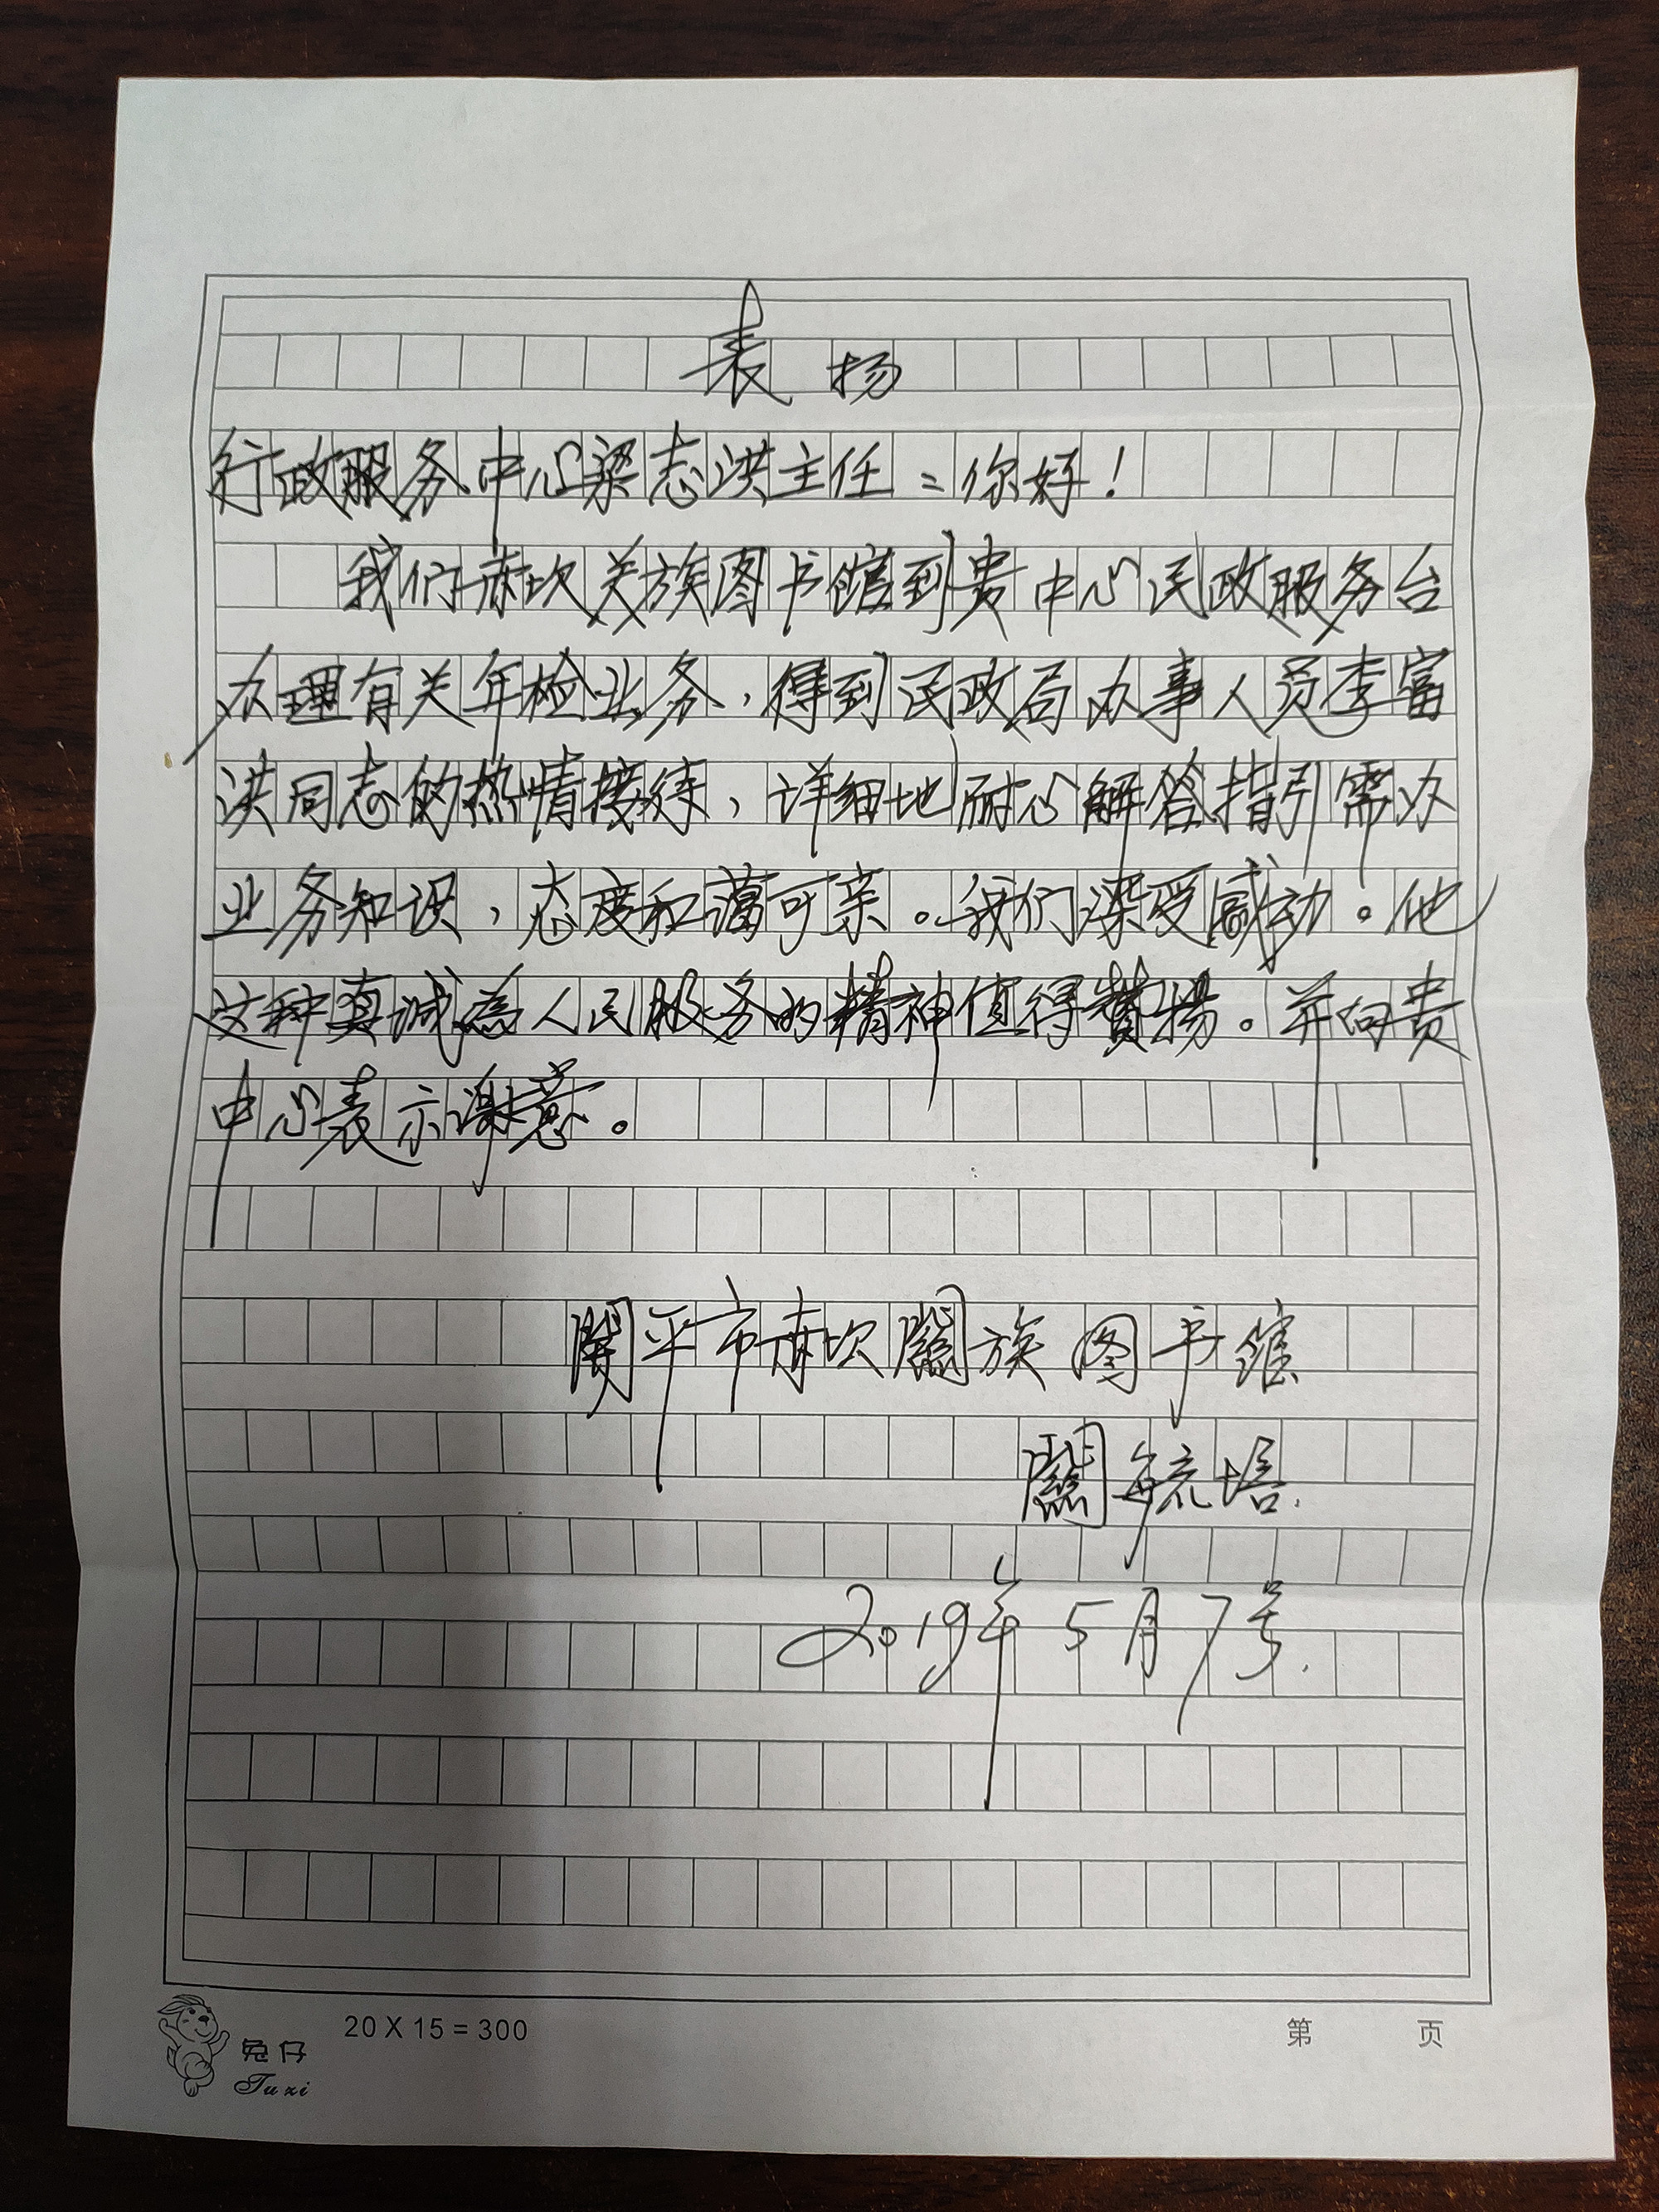 表扬
行政服务中心梁志洪主任：你好！
我们赤坎关族图书馆到贵中心民政服务台
办理有关年检业务，得到民政局办事人员李富
洪同志的热情接待，详细地耐心解答指引需办
业务知识，态度和蔼可亲。我们深受感动。他
这种真诚為人民服务的精神值得赞揚。并向贵
中心表示谢意。
開平市赤坎關族图书馆
關毓培.
2019年5月7号.
兔仔
Tuzi
20 X 15 = 300
第 页